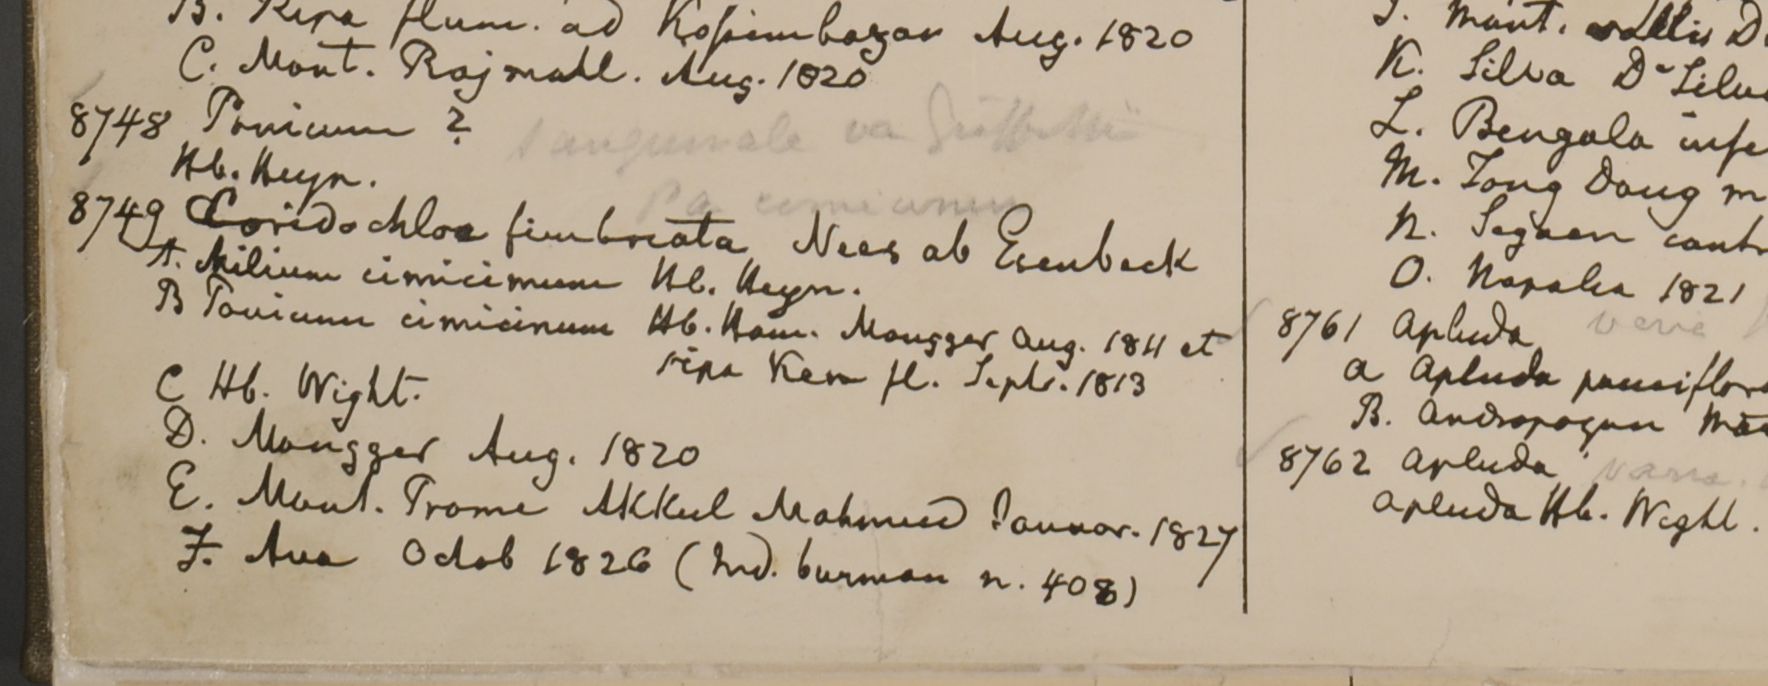 B. Ripa flum. ad Kossimbazar Aug. 1820
C. Mont. Rajmahl. Aug. 1820
8748 Panicum ?
Hb. Heyn.
8749 Coridochloa fimbriata Nees ab Esenbeck
A. Milium cimicinum Hb. Heyn.
B Panicum cimicinum Hb. Ham. Mongger Aug. 1811 et
ripa Ken fl. Septr. 1813
C Hb. Wight.
D. Mongger Aug. 1820
E. Mont. Prome Akkul Mahmud Januar. 1827
F. Ava Octob 1826 (Ind. burman n. 408)
J. Mont. vallis D
K. Silva D
L. Bengala infe
M. Tong Dong m
N. Segaen
O. Napalia 1821
8761 Apluda
a Apluda pauciflora
B. Andropogon
8762 Apluda
Apluda Hb. Wight.